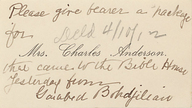 Please give bearer a "package
for Deld 4/10/12
Mrs. Charles Anderson.
that came to the Bible House
yesterday from
Bohdjelian